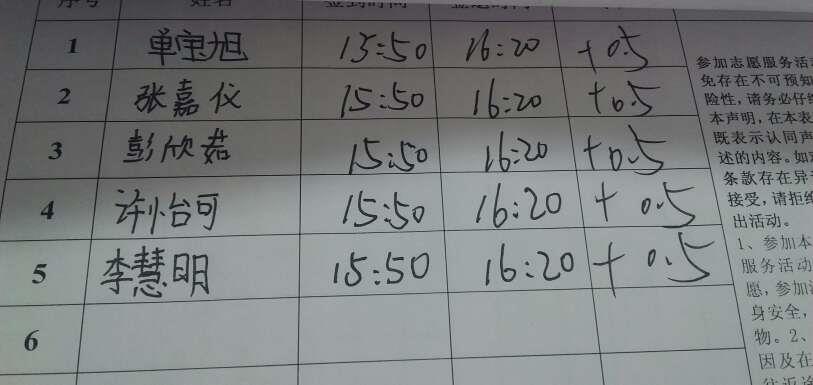 序号 姓名 签到时间 签退时间
1 单宝旭 15:50 16:20 +0.5
2 张嘉仪 15:50 16:20 +0.5
3 彭欣茹 15:50 16:20 +0.5
4 许怡可 15:50 16:20 +0.5
5 李慧明 15:50 16:20 +0.5
6
参加志愿服务活
免存在不可预知
险性，请务必仔
本声明，在本表
既表示认同声
述的内容。如
条款存在异
接受，请拒绝
出活动。
1、参加本
服务活动
愿，参加
身安全，
物。2、
因及在
往返途